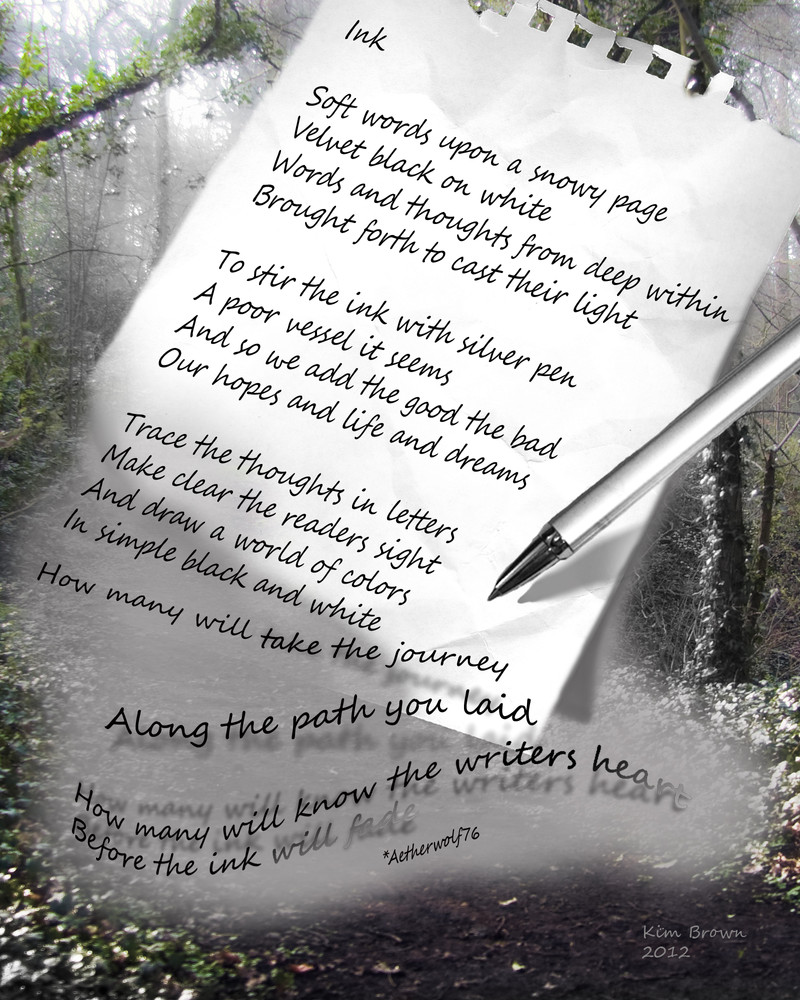 Ink
Soft words upon a snowy page
Velvet black on white
Words and thoughts from deep within
Brought forth to cast their light
To stir the ink with silver pen
A poor vessel it seems
And so we add the good the bad
Our hopes and life and dreams
Trace the thoughts in letters
Make clear the readers sight
And draw a world of colors
In simple black and white
How many will take the journey
Along the path you laid
How many will know the writers heart
Before the ink will fade
*Aetherwolf76
Kim Brown
2012